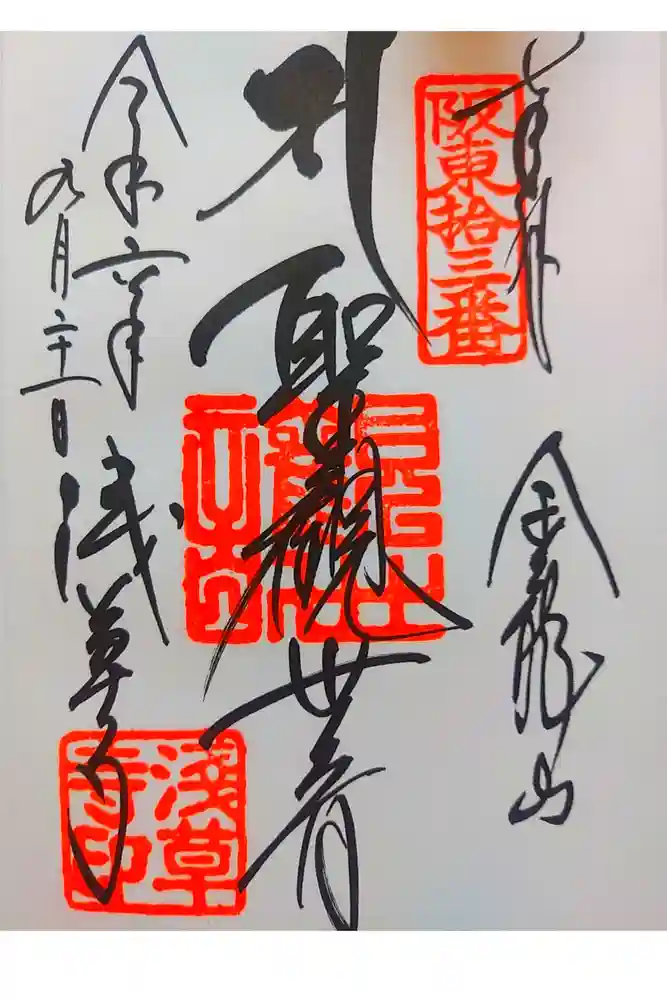 奉拝
阪東拾三番
金龍山
聖観世音
令和六年
九月二十一日
浅草寺
浅草寺印